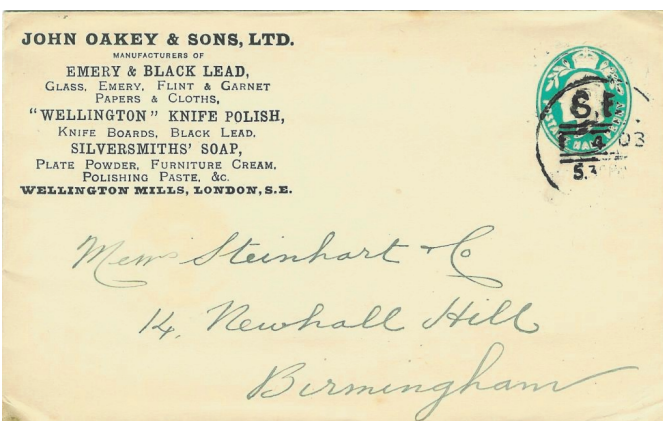 JOHN OAKEY & SONS, LTD.
MANUFACTURERS OF
EMERY & BLACK LEAD,
GLASS, EMERY, FLINT & GARNET
PAPERS & CLOTHS,
"WELLINGTON" KNIFE POLISH,
KNIFE BOARDS, BLACK LEAD,
SILVERSMITHS' SOAP,
PLATE POWDER, FURNITURE CREAM,
POLISHING PASTE, &c.
WELLINGTON MILLS, LONDON, S.E.
POSTAGE
S.E
4 03
5.3
Messrs Steinhart & Co
14, Newhall Hill
Birmingham